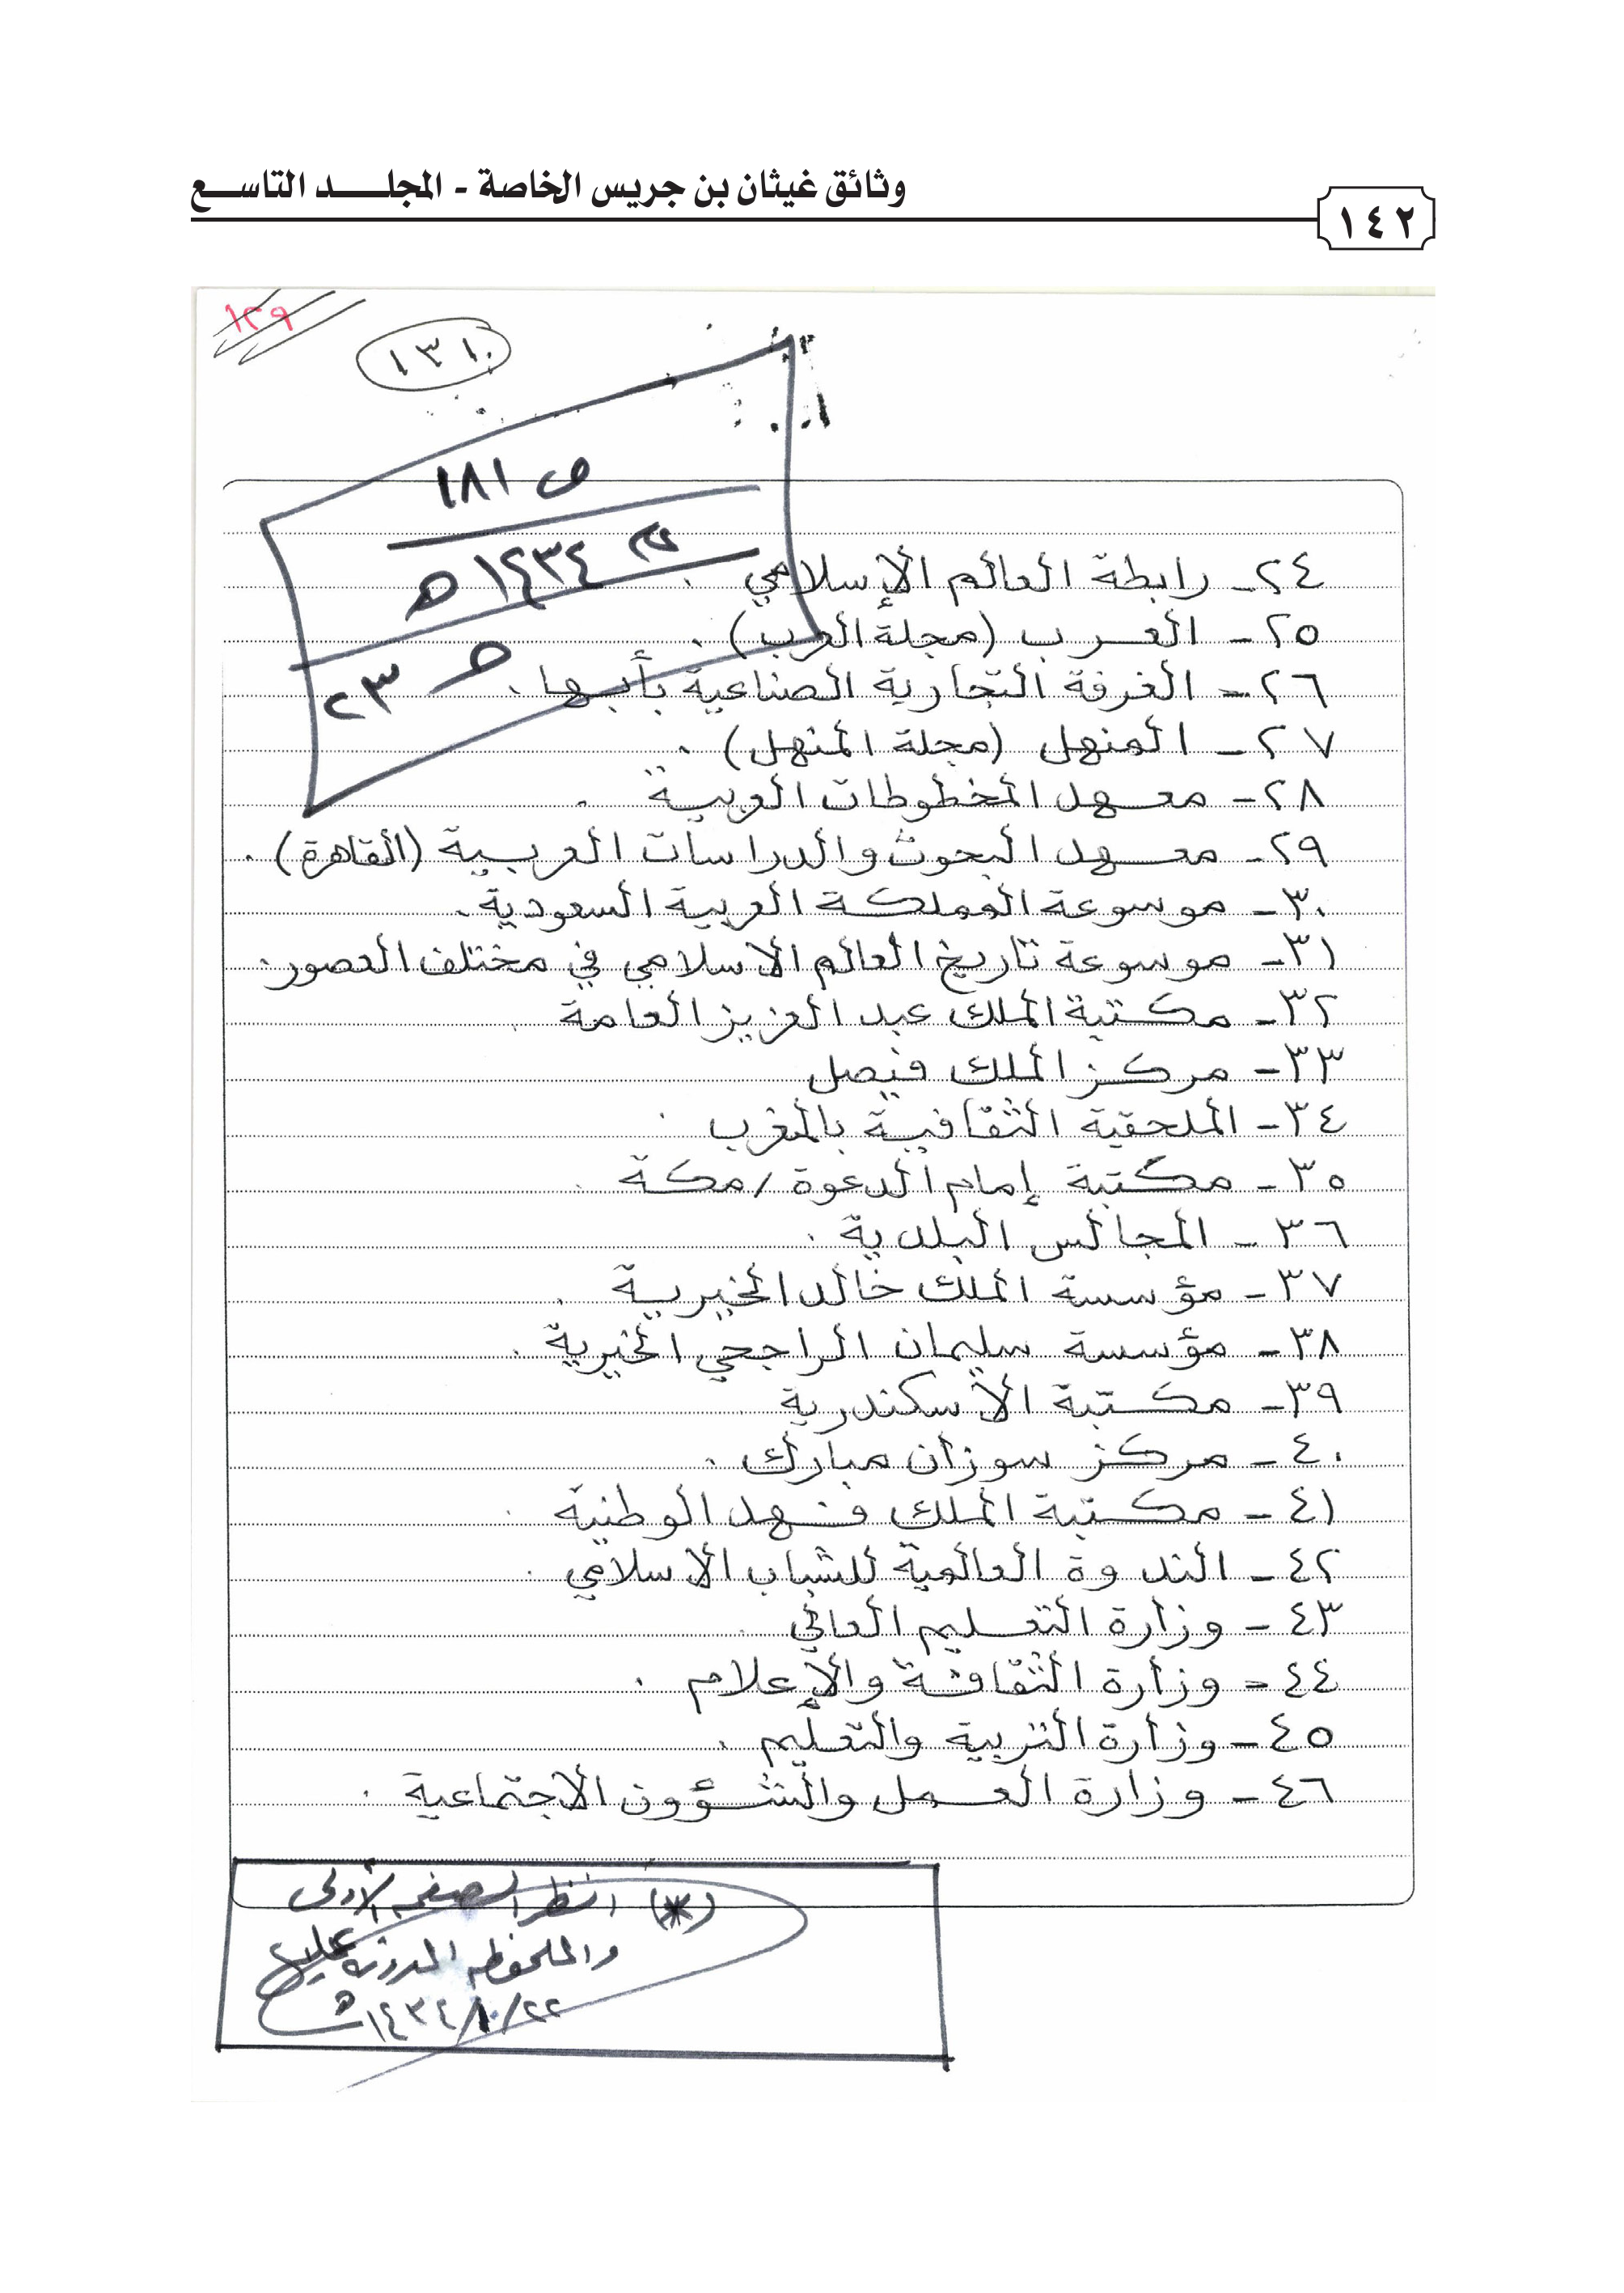 وثائق غيثان بن جريس الخاصة - المجلد التاسع
١٤٢
١٢٩
١٣٠
ص ١٨١
١٤٣٤ هـ
٢٣
٢٤- رابطة العالم الإسلامي .
٢٥- العرب (مجلة العرب) .
٢٦- الغرفة التجارية الصناعية بأبها .
٢٧- المنهل (مجلة المنهل) .
٢٨- معهد المخطوطات العربية .
٢٩- معهد البحوث والدراسات العربية (القاهرة) .
٣٠- موسوعة المملكة العربية السعودية .
٣١- موسوعة تاريخ العالم الاسلامي في مختلف العصور .
٣٢- مكتبة الملك عبد العزيز العامة
٣٣- مركز الملك فيصل
٣٤- الملحقية الثقافية بالمغرب .
٣٥- مكتبة إمام الدعوة / مكة .
٣٦- المجالس البلدية .
٣٧- مؤسسة الملك خالد الخيرية .
٣٨- مؤسسة سليمان الراجحي الخيرية .
٣٩- مكتبة الأسكندرية
٤٠- مركز سوزان مبارك .
٤١- مكتبة الملك فهد الوطنية .
٤٢- الندوة العالمية للشباب الاسلامي .
٤٣- وزارة التعليم العالي .
٤٤- وزارة الثقافة والإعلام .
٤٥- وزارة التربية والتعليم .
٤٦- وزارة العمل والشؤون الاجتماعية .
(*) انظر الصفحة الأولى
والملحوظة المدونة عليها
٢٢/١٠/١٤٣٤هـ